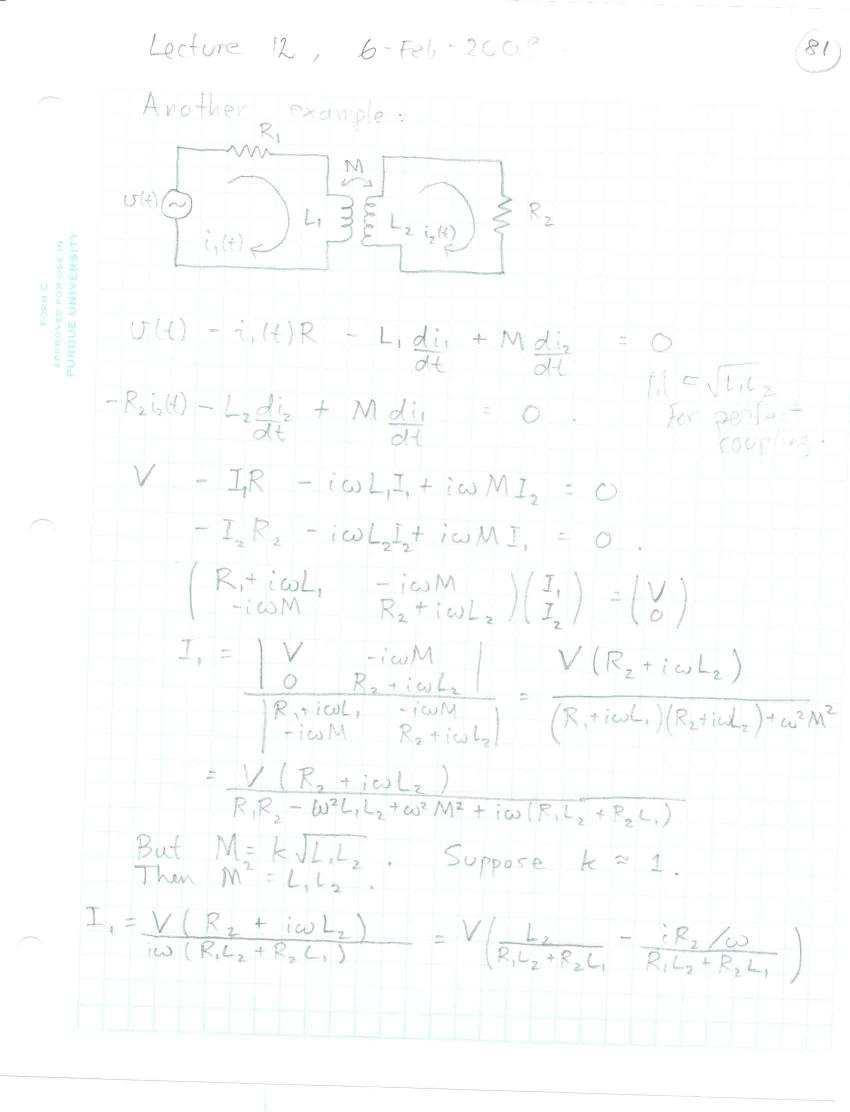 Lecture 12, 6-Feb-2008.
81
Another example:
R₁
M
v(t)
L₁
L₂
i₁(t)
i₂(t)
R₂
FORM C
APPROVED FOR USE IN
PURDUE UNIVERSITY
v(t) - i₁(t)R - L₁ di₁/dt + M di₂/dt = 0
M = √L₁L₂
for perfect
coupling.
-R₂i₂(t) - L₂ di₂/dt + M di₁/dt = 0.
V - I₁R - iωL₁I₁ + iωMI₂ = 0
- I₂R₂ - iωL₂I₂ + iωMI₁ = 0.
(R₁+iωL₁ -iωM; -iωM R₂+iωL₂)(I₁; I₂) = (V; 0)
I₁ = |V -iωM; 0 R₂+iωL₂| / |R₁+iωL₁ -iωM; -iωM R₂+iωL₂| = V(R₂+iωL₂) / (R₁+iωL₁)(R₂+iωL₂)+ω²M²
= V(R₂ + iωL₂) / R₁R₂ - ω²L₁L₂+ω²M² + iω(R₁L₂ + R₂L₁)
But M = k√L₁L₂. Suppose k ≈ 1.
Then M² = L₁L₂.
I₁ = V(R₂ + iωL₂) / iω(R₁L₂ + R₂L₁) = V(L₂ / R₁L₂+R₂L₁ - iR₂/ω / R₁L₂+R₂L₁)